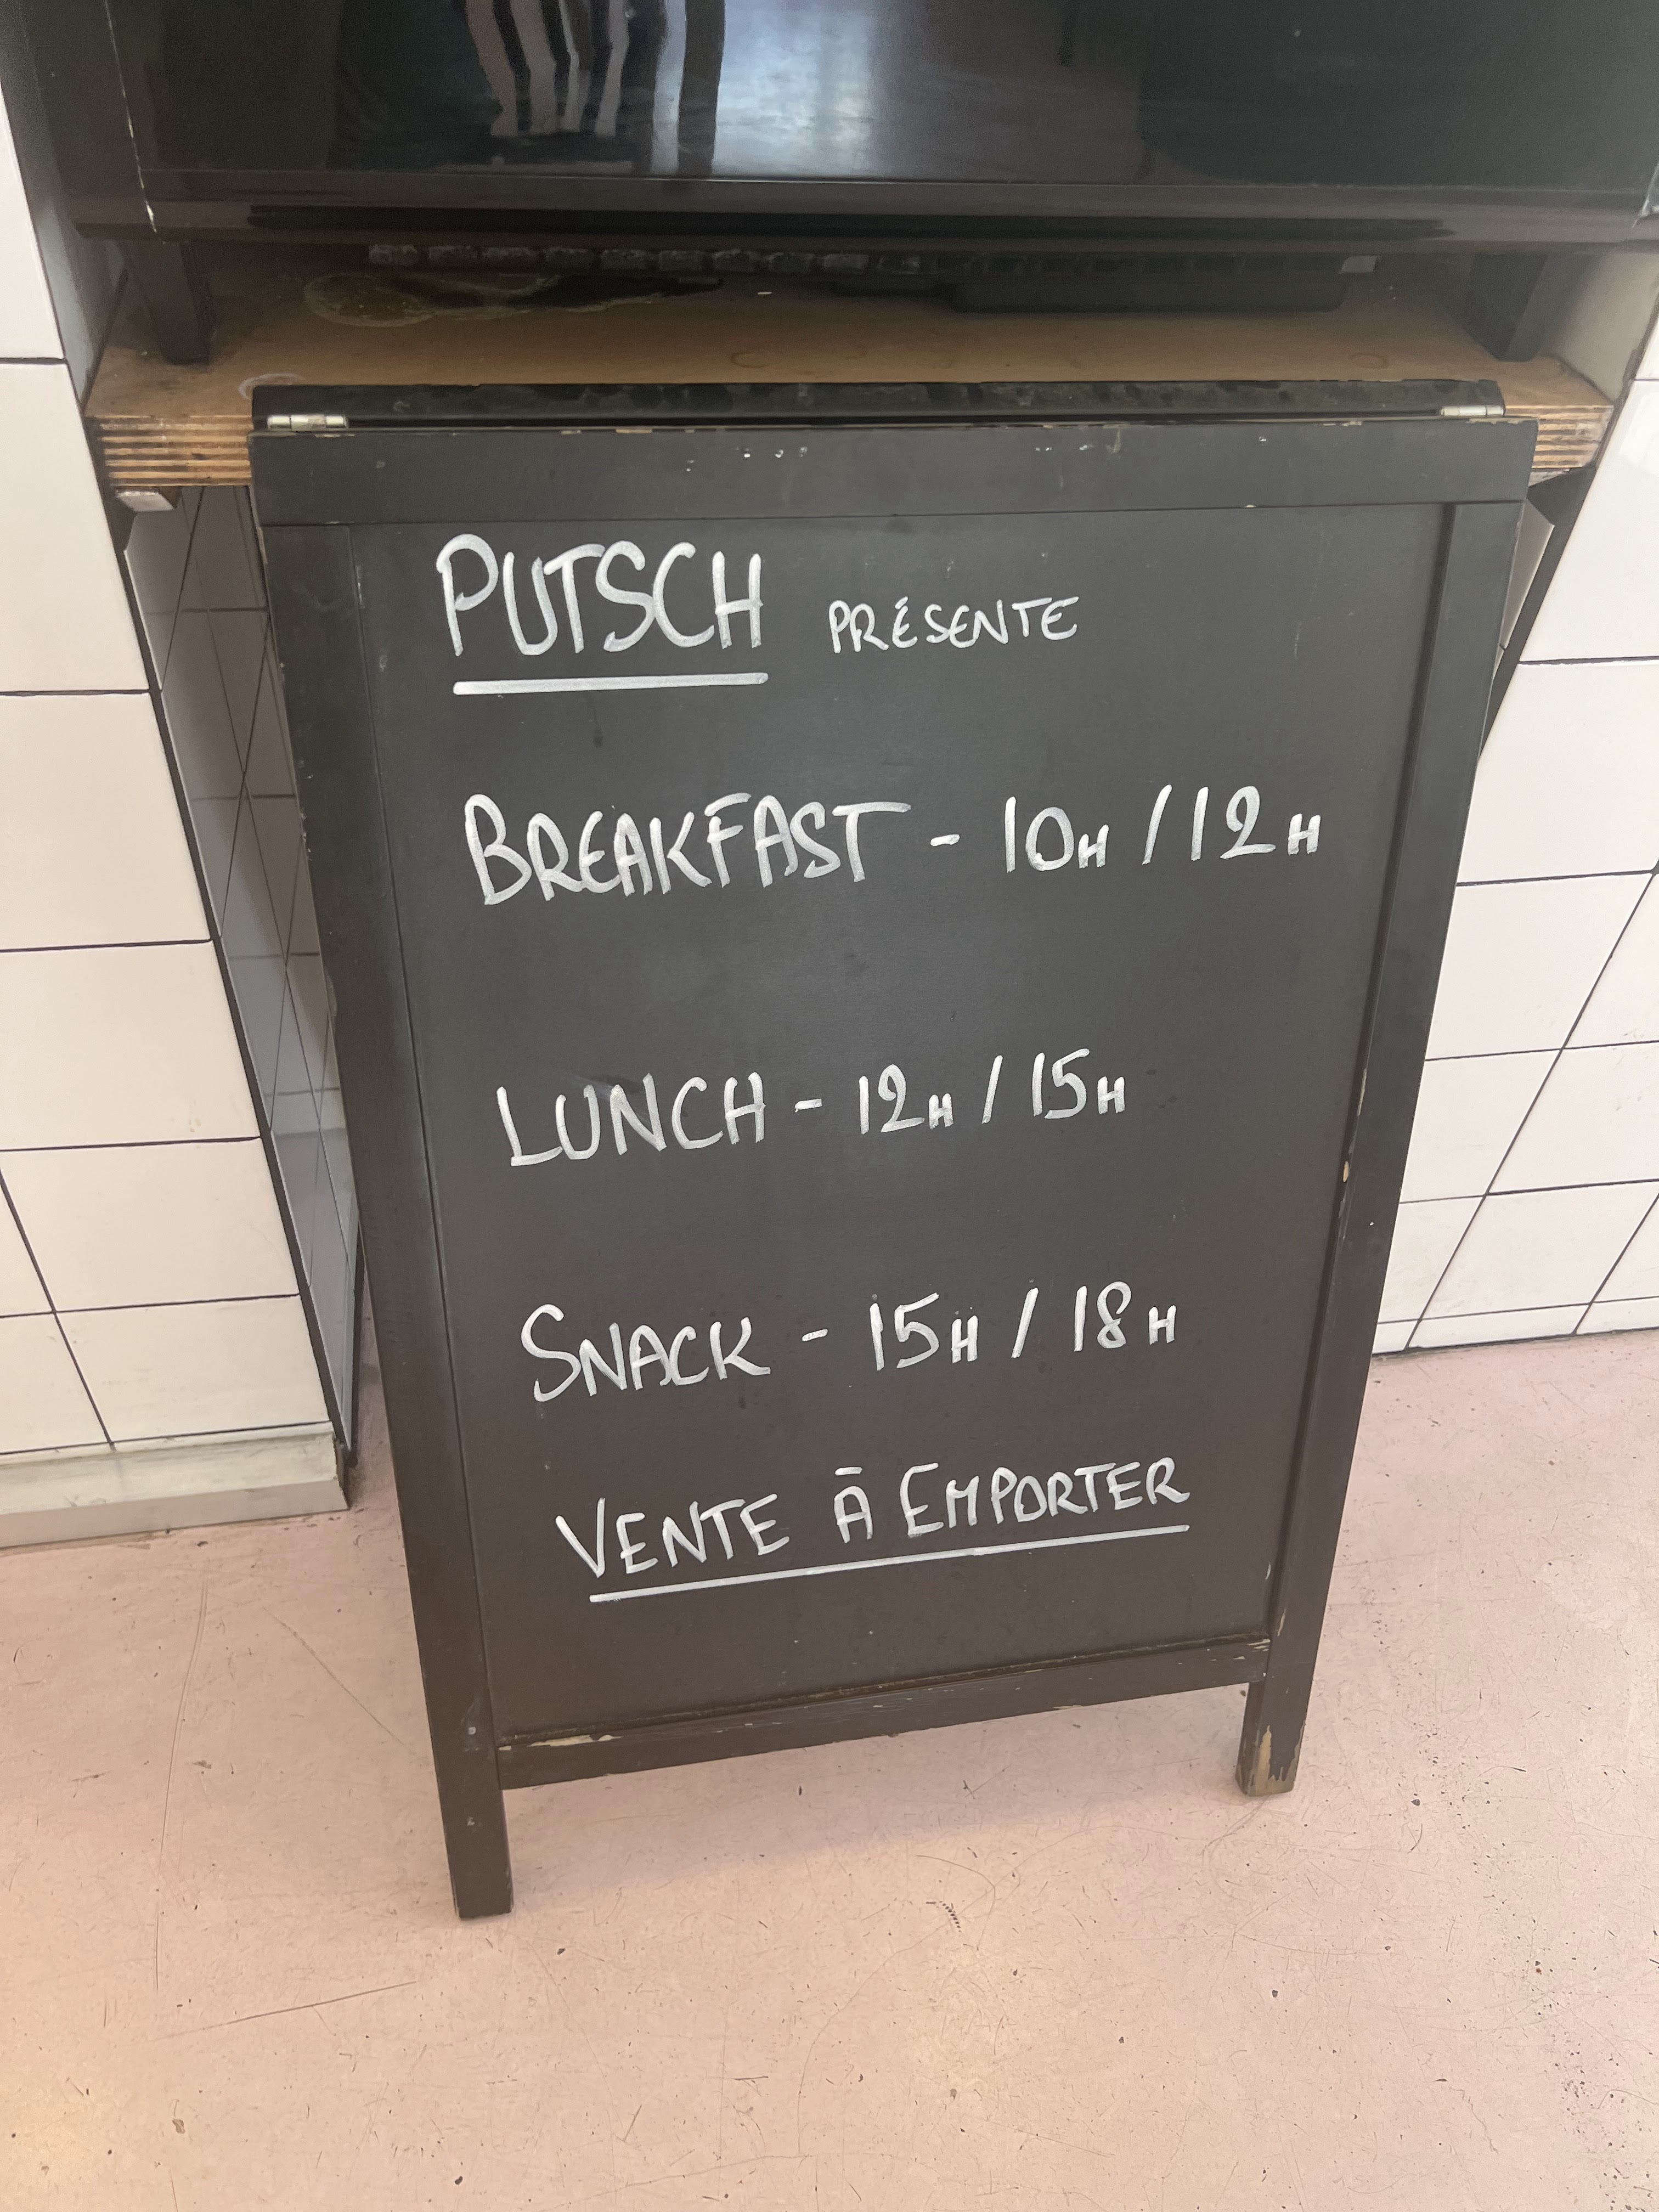 PUTSCH PRÉSENTE
BREAKFAST - 10H / 12H
LUNCH - 12H / 15H
SNACK - 15H / 18H
VENTE À EMPORTER